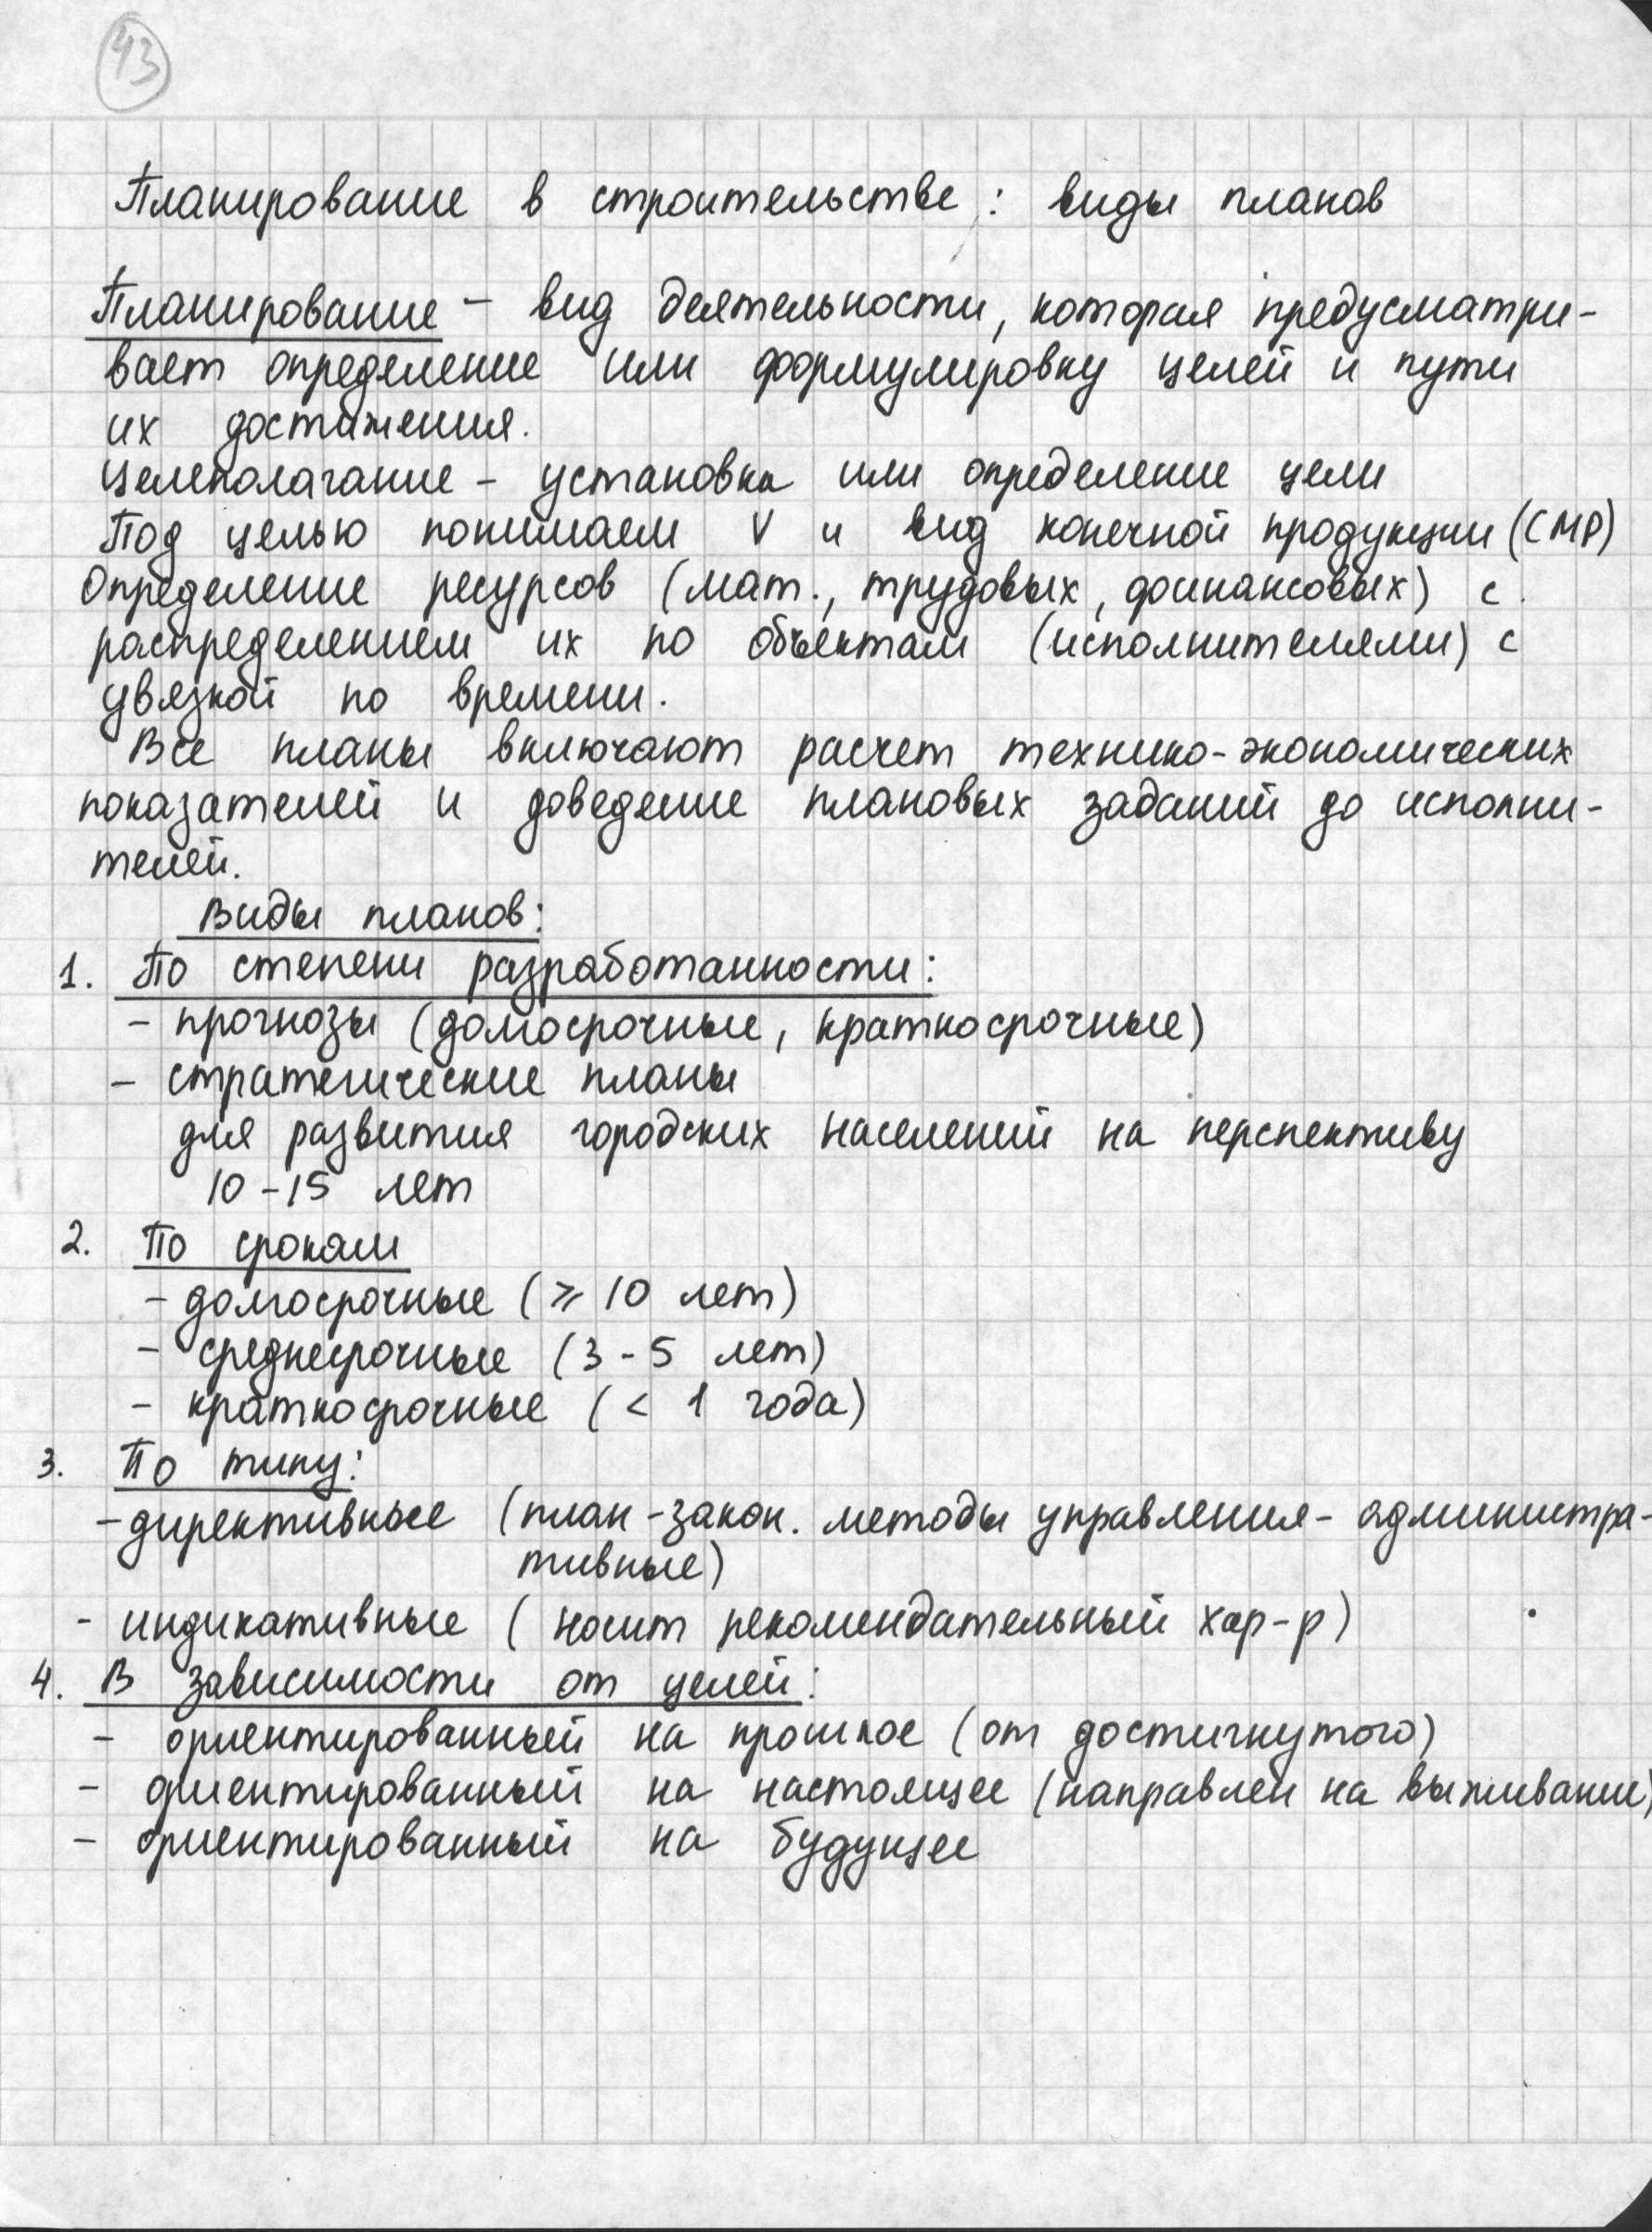 43
Планирование в строительстве: виды планов
Планирование - вид деятельности, которая предусматри-
вает определение или формулировку целей и пути
их достижения.
Целеполагание - установка или определение цели
Под целью понимаем V и вид конечной продукции (СМР)
Определение ресурсов (мат., трудовых, финансовых) с
распределением их по объектам (исполнителями) с
увязкой по времени.
Все планы включают расчет технико-экономических
показателей и доведение плановых заданий до исполни-
телей.
Виды планов:
1. По степени разработанности:
- прогнозы (домосрочные, краткосрочные)
- стратегические планы
для развития городских населений на перспективу
10-15 лет
2. По срокам
- долгосрочные (⩾ 10 лет)
- среднесрочные (3-5 лет)
- краткосрочные (< 1 года)
3. По типу:
- директивные (план-закон. методы управления - администра-
тивные)
- индикативные (носит рекомендательный хар-р)
4. В зависимости от целей:
- ориентированный на прошлое (от достигнутого)
- ориентированный на настоящее (направлен на выживание)
- ориентированный на будущее